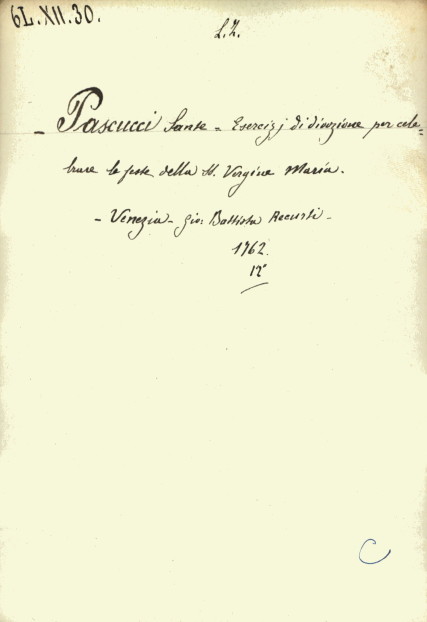 6L.XII.30.
L.Z.
- Pascucci Sante = Esercizj di divozione per cele=
brare le feste della SS. Vergine Maria.
- Venezia - Gio: Battista Recurti -
1762.
12°
C